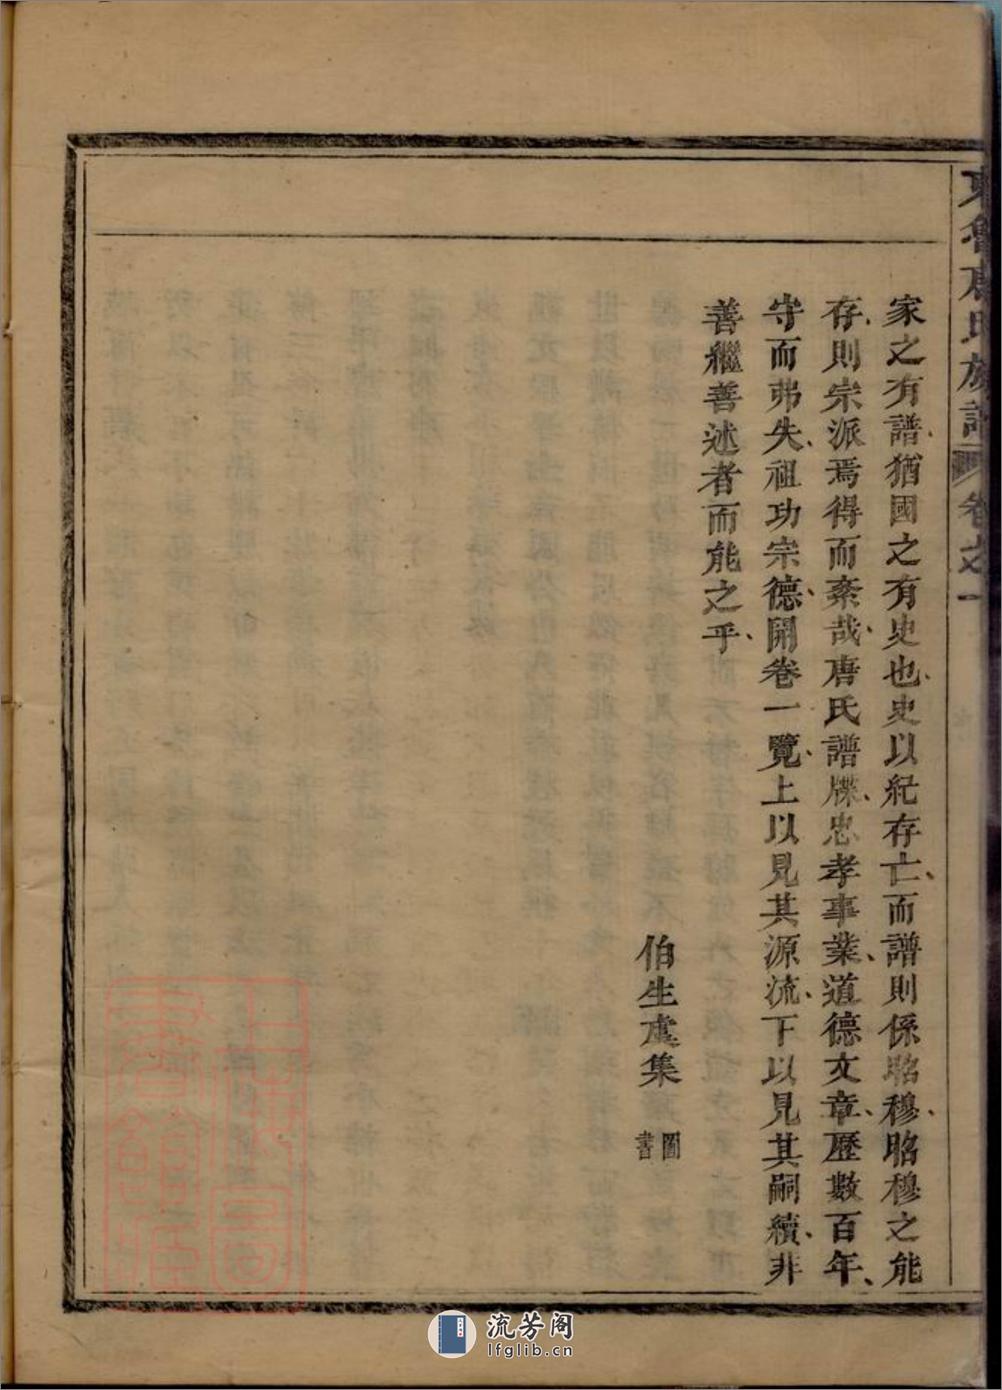 東魯唐氏族譜 卷之一
家之有譜、猶國之有史也、史以紀存亡、而譜則係昭穆、昭穆之能
存、則宗派焉得而紊哉、唐氏譜牒、忠孝事業、道德文章、歷數百年、
守而弗失、祖功宗德、開卷一覽、上以見其源流、下以見其嗣續、非
善繼善述者而能之乎、
伯生虞集 圖書
上海圖書館藏
流芳阁
lfglib.cn